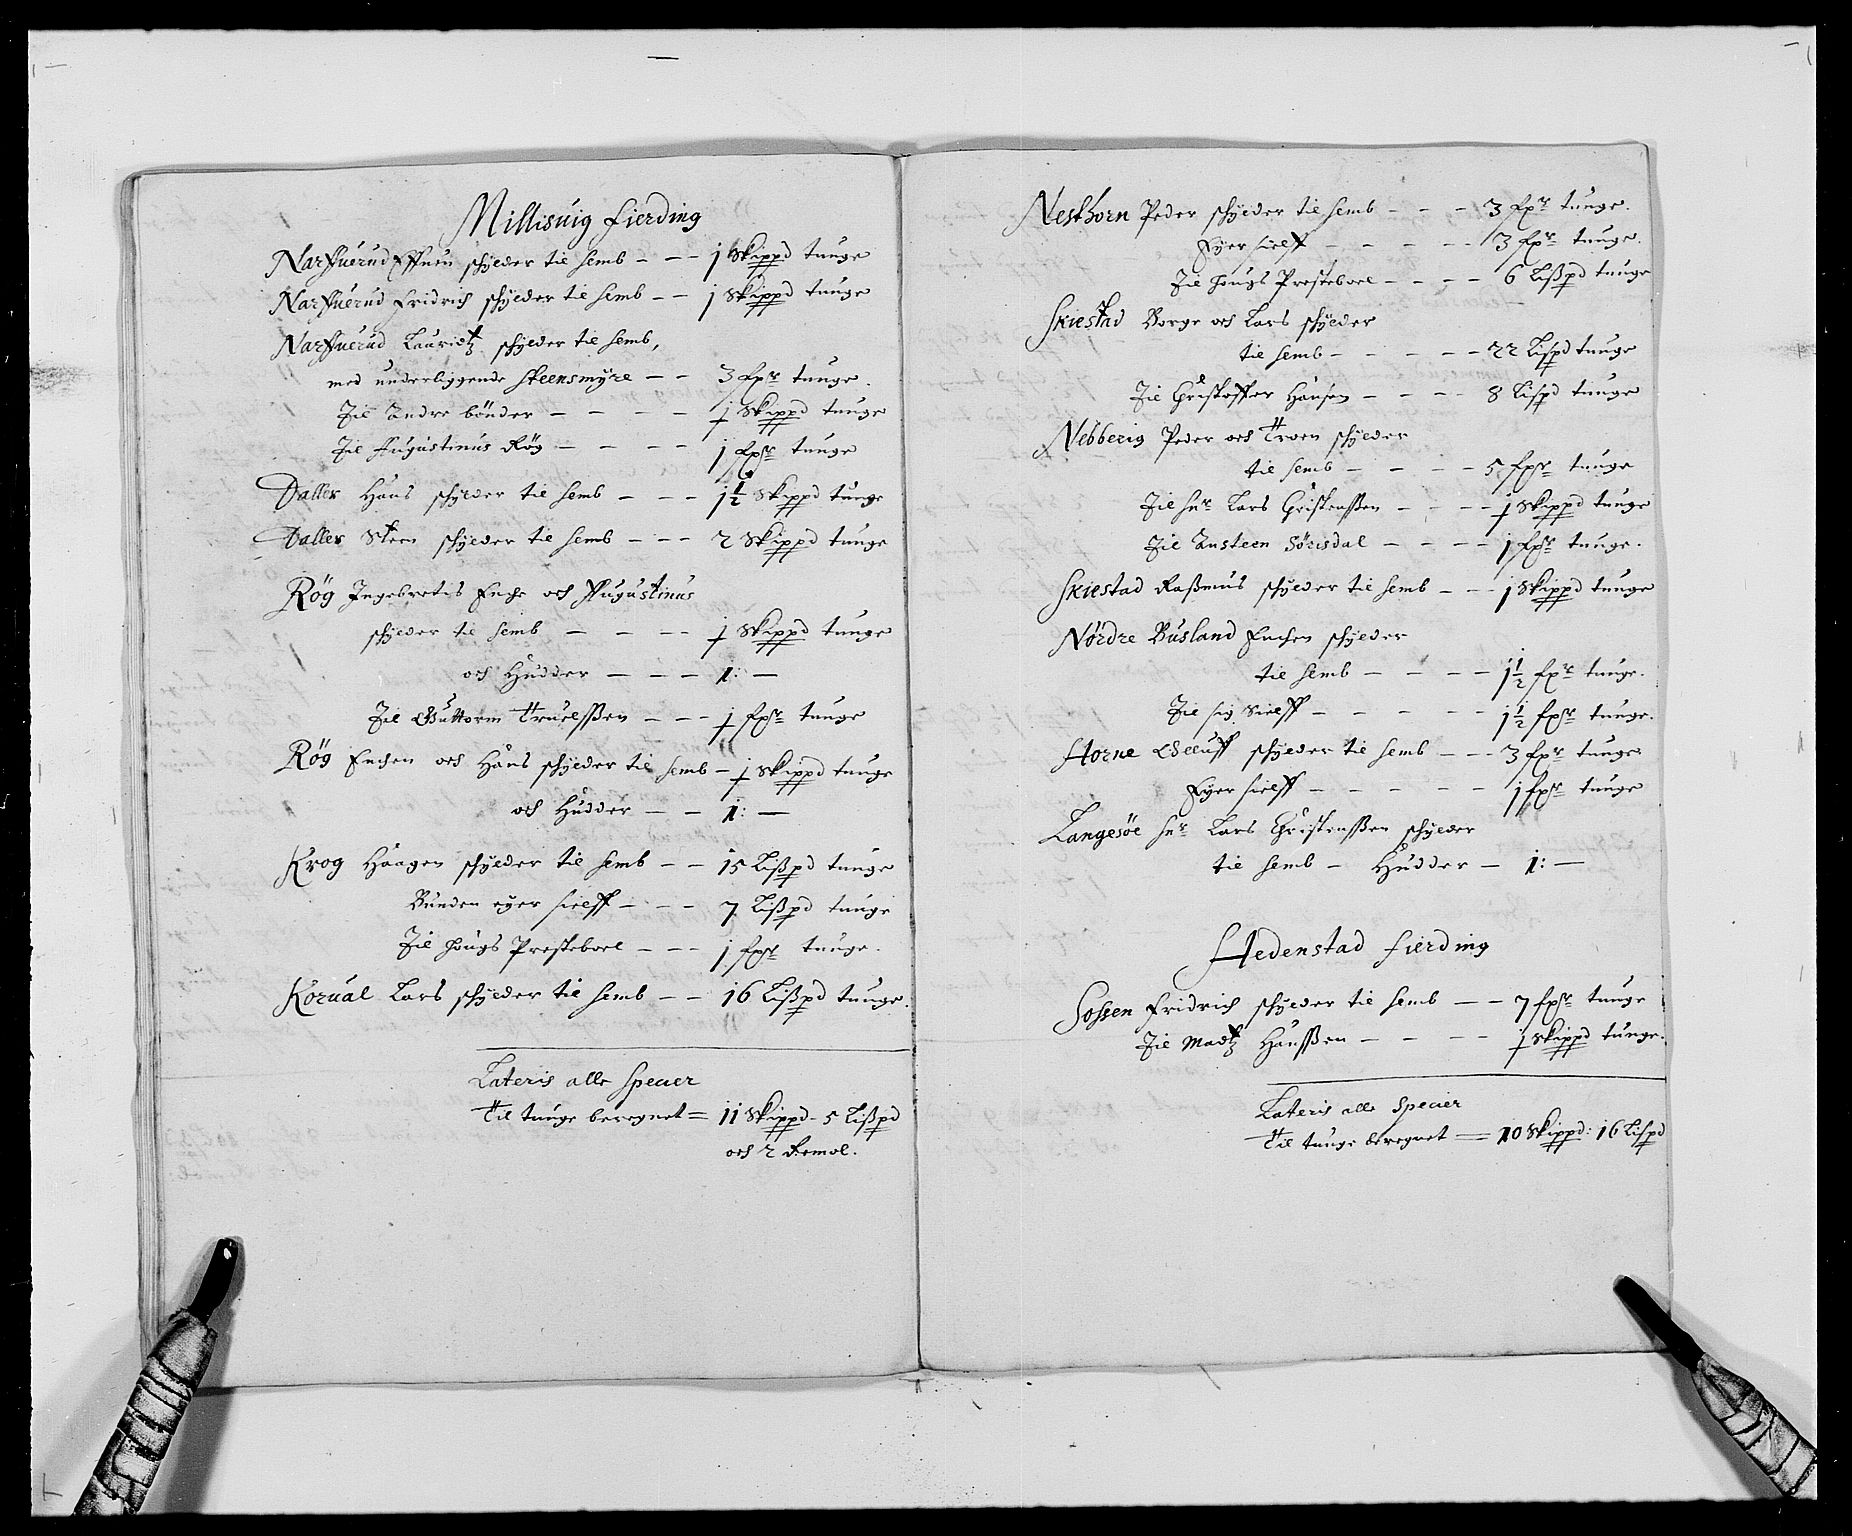 Millisuig fierding
Narffuerud Effuen schylder til Semb - - - 1 Skippd tunge
Narffuerud Fridrich schylder til Semb - - 1 Skippd tunge
Narffuerud Lauridtz schylder til Semb,
med underliggende Steensmyre - - 3 fpr tunge.
Til andre bönder - - - - 1 Skippd tunge
Til Augustinus Røg - - - - 1 fpr tunge
Daller Hans schylder til Semb - - - 1½ Skippd tunge
Daller Steen schylder til Semb - - - 2 Skippd tunge
Røg Ingebretis Enche och Augustinus
schylder til Semb - - - - 1 Skippd tunge
och Hudder - - - 1: -
Til Guttorm Truelssen - - - 1 fpr tunge
Røg Enchen och Hans schylder til Semb - 1 Skippd tunge
och Hudder - - 1: -
Krog Haagen schylder til Semb - - 15 Lißpd tunge
Bunden eyer sielff - - - 7 Lißpd tunge
Til Hougs Presteboel - - - 1 fpr tunge.
Korual Lars schylder til Semb - - 16 Lißpd tunge.
Lateris alle Specier
Til tunge beregnet = 11 Skippd - 5 Lißpd
och 2 Remol.
Nesthorn Peder schylder til Semb - - - 3 fpr tunge.
Eyer sielff - - - - - 3 fpr tunge.
Til Hougs Presteboel - - - - 6 Lißpd tunge
Skiestad Borge och Lars schylder
til Semb - - - - - 22 Lispd tunge
Til Christoffer Hansen - - - - 8 Lispd tunge
Nebberig Peder och Troen schylder
til Semb - - - - 5 fpr tunge
Til Hr Lars Christenssen - - - 1 Skippd tunge
Til Austeen Sörisdal - - - 1 fpr tunge.
Skiestad Raßmus schylder til Semb - - 1 Skippd tunge
Nördre Busland Enchen schylder
til Semb - - - - 1½ fpr tunge.
Til sig Sielff - - - - - 1½ fpr tunge.
Horne Elluff schylder til Semb - - 3 fpr tunge
Eyer sielff - - - - - 1 fpr tunge
Langesöe Hr Lars Christenssen schylder
til Semb - Hudder - 1: -
Hedenstad fierding
Sossen Fridrich schylder til Semb - - 7 fpr tunge
Til Madtz Hanssen - - - - 1 Skippd tunge.
Lateris alle Specier
Til tunge beregnet = 10 Skippd: 16 Lispd